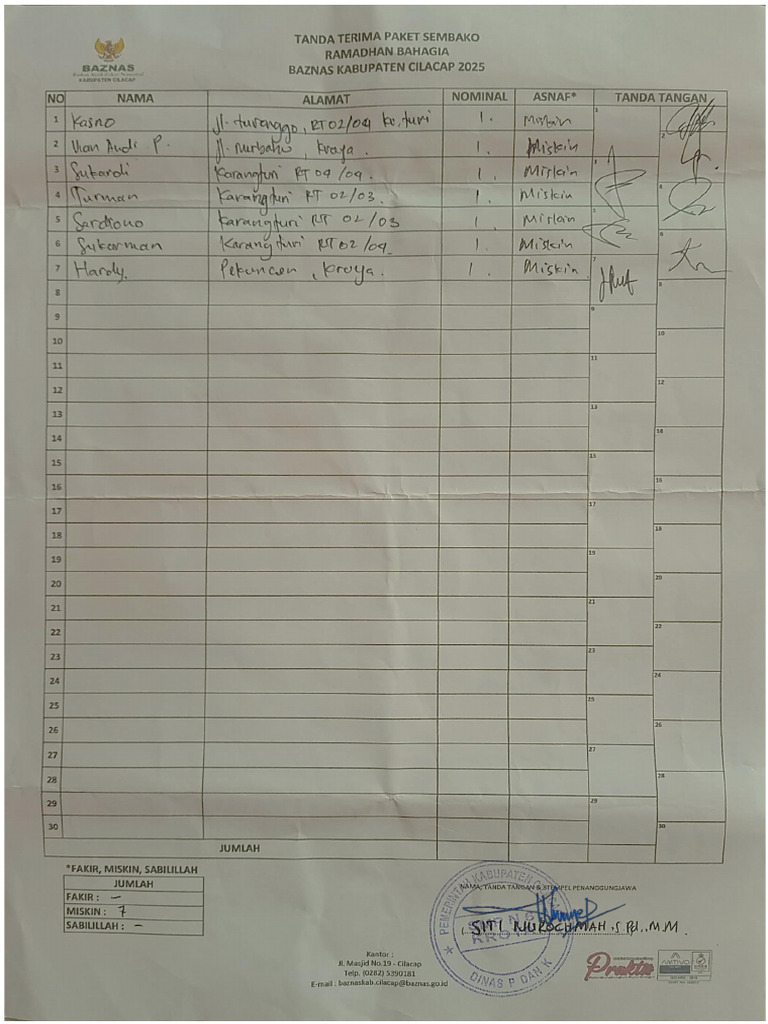 TANDA TERIMA PAKET SEMBAKO
RAMADHAN BAHAGIA
BAZNAS KABUPATEN CILACAP 2025
BAZNAS
Badan Amil Zakat Nasional
KABUPATEN CILACAP
NO NAMA ALAMAT NOMINAL ASNAF* TANDA TANGAN
1 Kasno Jl. turonggo, RT 02/04 kr. turi 1. Miskin 1
2 Vian Andi P. Jl. nurbaho, kroya. 1. Miskin 2
3 Sukardi Karangturi RT 04/04. 1. Miskin 3
4 Turman Karangturi RT 02/03. 1. Miskin 4
5 Sardiono Karangturi RT 02/03 1. Miskin 5
6 Sukarman Karangturi RT 02/04 1. Miskin 6
7 Hardy. Pekuncen, kroya. 1. Miskin 7
8 8
9 9
10 10
11 11
12 12
13 13
14 14
15 15
16 16
17 17
18 18
19 19
20 20
21 21
22 22
23 23
24 24
25 25
26 26
27 27
28 28
29 29
30 30
JUMLAH
*FAKIR, MISKIN, SABILILLAH
JUMLAH
FAKIR : -
MISKIN : 7
SABILILLAH : -
NAMA, TANDA TANGAN & STEMPEL PENANGGUNGJAWA
SITI NUROCHMAH, S.Pd., M.M.
PEMERINTAH KABUPATEN
KROYA
DINAS P DAN K
Kantor :
Jl. Masjid No.19 - Cilacap
Telp. (0282) 5390181
E-mail : baznaskab.cilacap@baznas.go.id